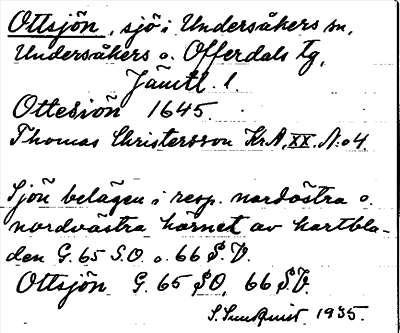 Ottsjön, sjö i Undersåkers sn,
Undersåkers o. Offerdals tg,
Jämtl. l.
Ottesiön 1645.
Thomas Christersson KrA, XX. N:o 4.
Sjön belägen i resp. nordöstra o.
nordvästra hörnet av kartbla-
den G. 65 S.O. o. 66 S.V.
Ottsjön G. 65 SO, 66 S.V.
S. Sundquist 1935.